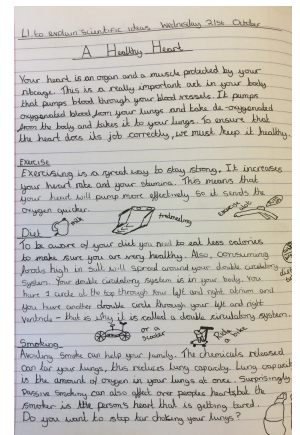 L.I. to explain scientific ideas Wednesday 21st October
A Healthy Heart
Your heart is an organ and a muscle protected by your
ribcage. This is a really important ack in your body
that pumps blood through your blood vessels. It pumps
oxygenated blood from your lungs and take de-oxygenated
from the body and takes it to your lungs. To ensure that
the heart does its job correctly, we must keep it healthy.
Exercise
Exercising is a great way to stay strong. It increases
your heart rate and your stamina. This means that
your heart will pump more effectively so it sends the
oxygen quicker.
treadmeling
exercise
Diet
milk
To be aware of your diet you need to eat less calories
to make sure you are very healthy. Also, consuming
foods high in salt will spread around your double circulatory
system. Your double circulatory system is in your body. You
have 1 circle at the top through your left and right atrium and
you have another double circle through your left and right
ventricle - that is why it is called a double circulatory system.
or a
scooter
Ride
a bike
Smoking
Avoiding smoke can help your family. The chemicals released
can tar your lungs, this reduces lung capacity. Lung capacity
is the amount of oxygen in your lungs at once. Surprisingly
Passive smoking can also affect over peoples hearts but the
smoker is the person's heart that is getting tared.
Do you want to stop tar choking your lungs?